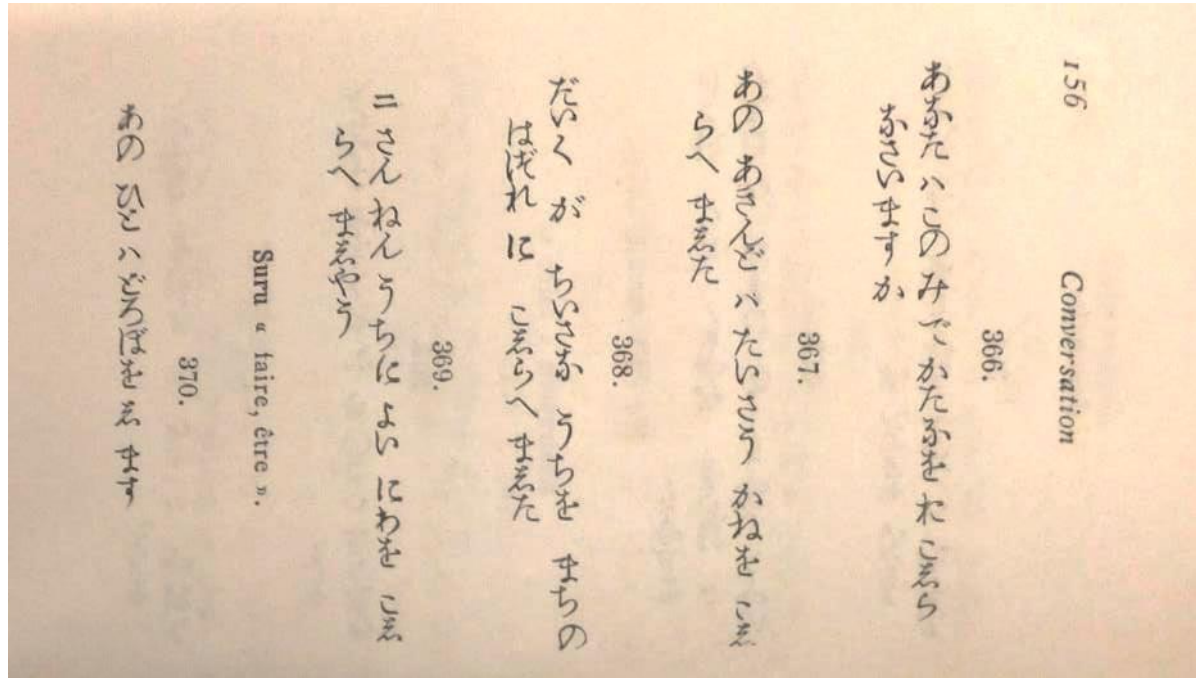 156 Conversation
366.
あなた ハ このみ で かたなを おこしら
なさいます か
367.
あの あきんど ハ たいさう かねを こし
らへ ました
368.
だいく が ちいさな うちを まちの
はづれ に こしらへ ました
369.
二 さん ねん うちに よい にわを こし
らへ ましやう
Suru « faire, être ».
370.
あの ひと ハ どろばうを し ます